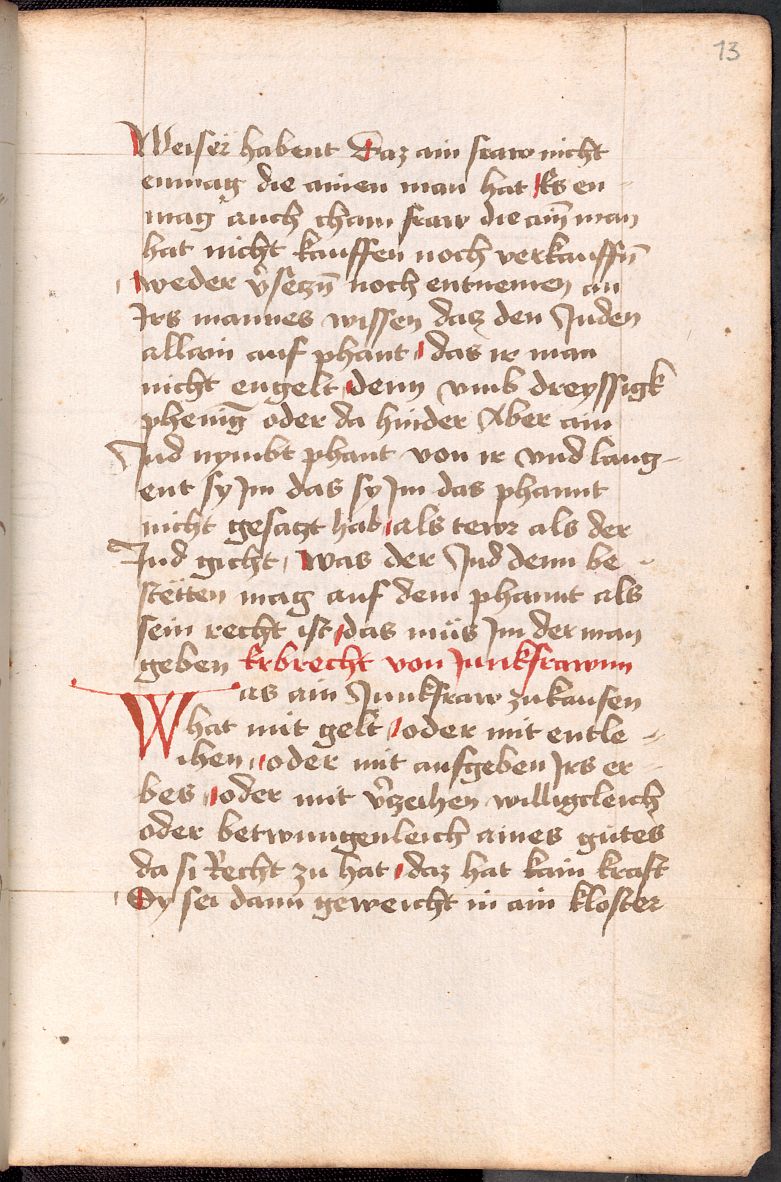 13
Weiser habent Daz ain fraw nicht
enmag die ainen man hat Es en-
mag auch cham fraw die ainn man
hat nicht kauffen noch verkauffn̄
weder v̾seczn̄ noch entnemen an
Irs mannes wissen daz den Juden
allain auf phant das ir man
nicht engelt denn vmb dreyssigk
pheniḡ oder da hinder Aber ain
Jud nymbt phant von ir vnd laug-
ent sy Im das sy Im das phannt
nicht gesaczt hab als tewr als der
Jud gicht was der Jud denn be-
stëtten mag auf dem phannt als
sein recht ist das müs Im der man
geben Erbrecht von Junkfrawnn
Was ain Junkfraw zukaufen
hat mit gelt oder mit entle-
ihen oder mit aufgeben Irs er-
bes oder mit v̾czeihen willigcleich
oder betwungenleich aines gutes
da si Recht zu hat daz hat kain kraft
Sy sei dann geweicht in ain kloster